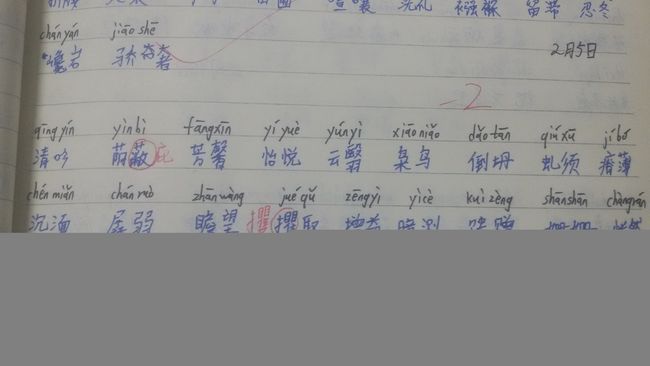 留滞 忍冬
chán yán jiāo shē
巉岩 骄奢
2月5日
-2
qīng yín yìn bì fāng xīn yí yuè yún yì xiāo niǎo dǎo tān qiú xū jí bó
清吟 荫蔽 庇 芳馨 怡悦 云翳 枭鸟 倒坍 虬须 瘠薄
chén miǎn chán ruò zhān wàng jué qǔ zēng yì yì cè kuì zèng shān shān chàng rán
沉湎 孱弱 瞻望 攫 攫取 增益 臆测 馈赠 姗姗 怅然